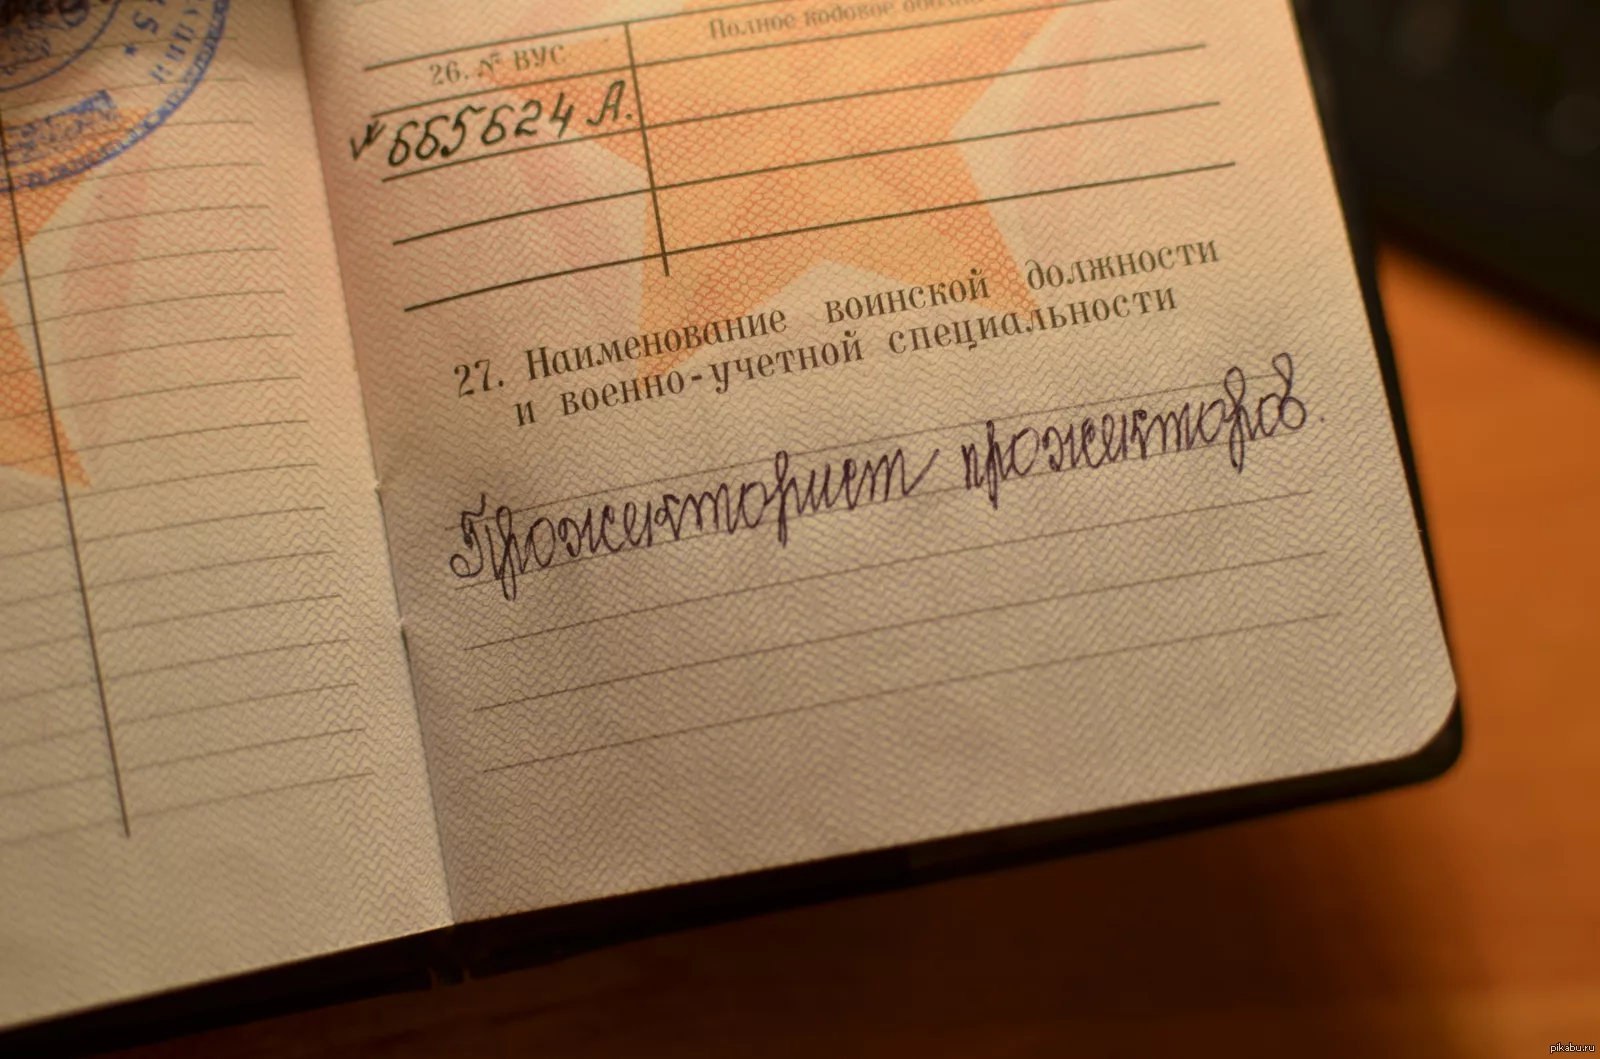 Полное кодовое
26. № ВУС
№ 665624 А.
27. Наименование воинской должности
и военно-учетной специальности
Прожекторист прожекторов.
pikabu.ru